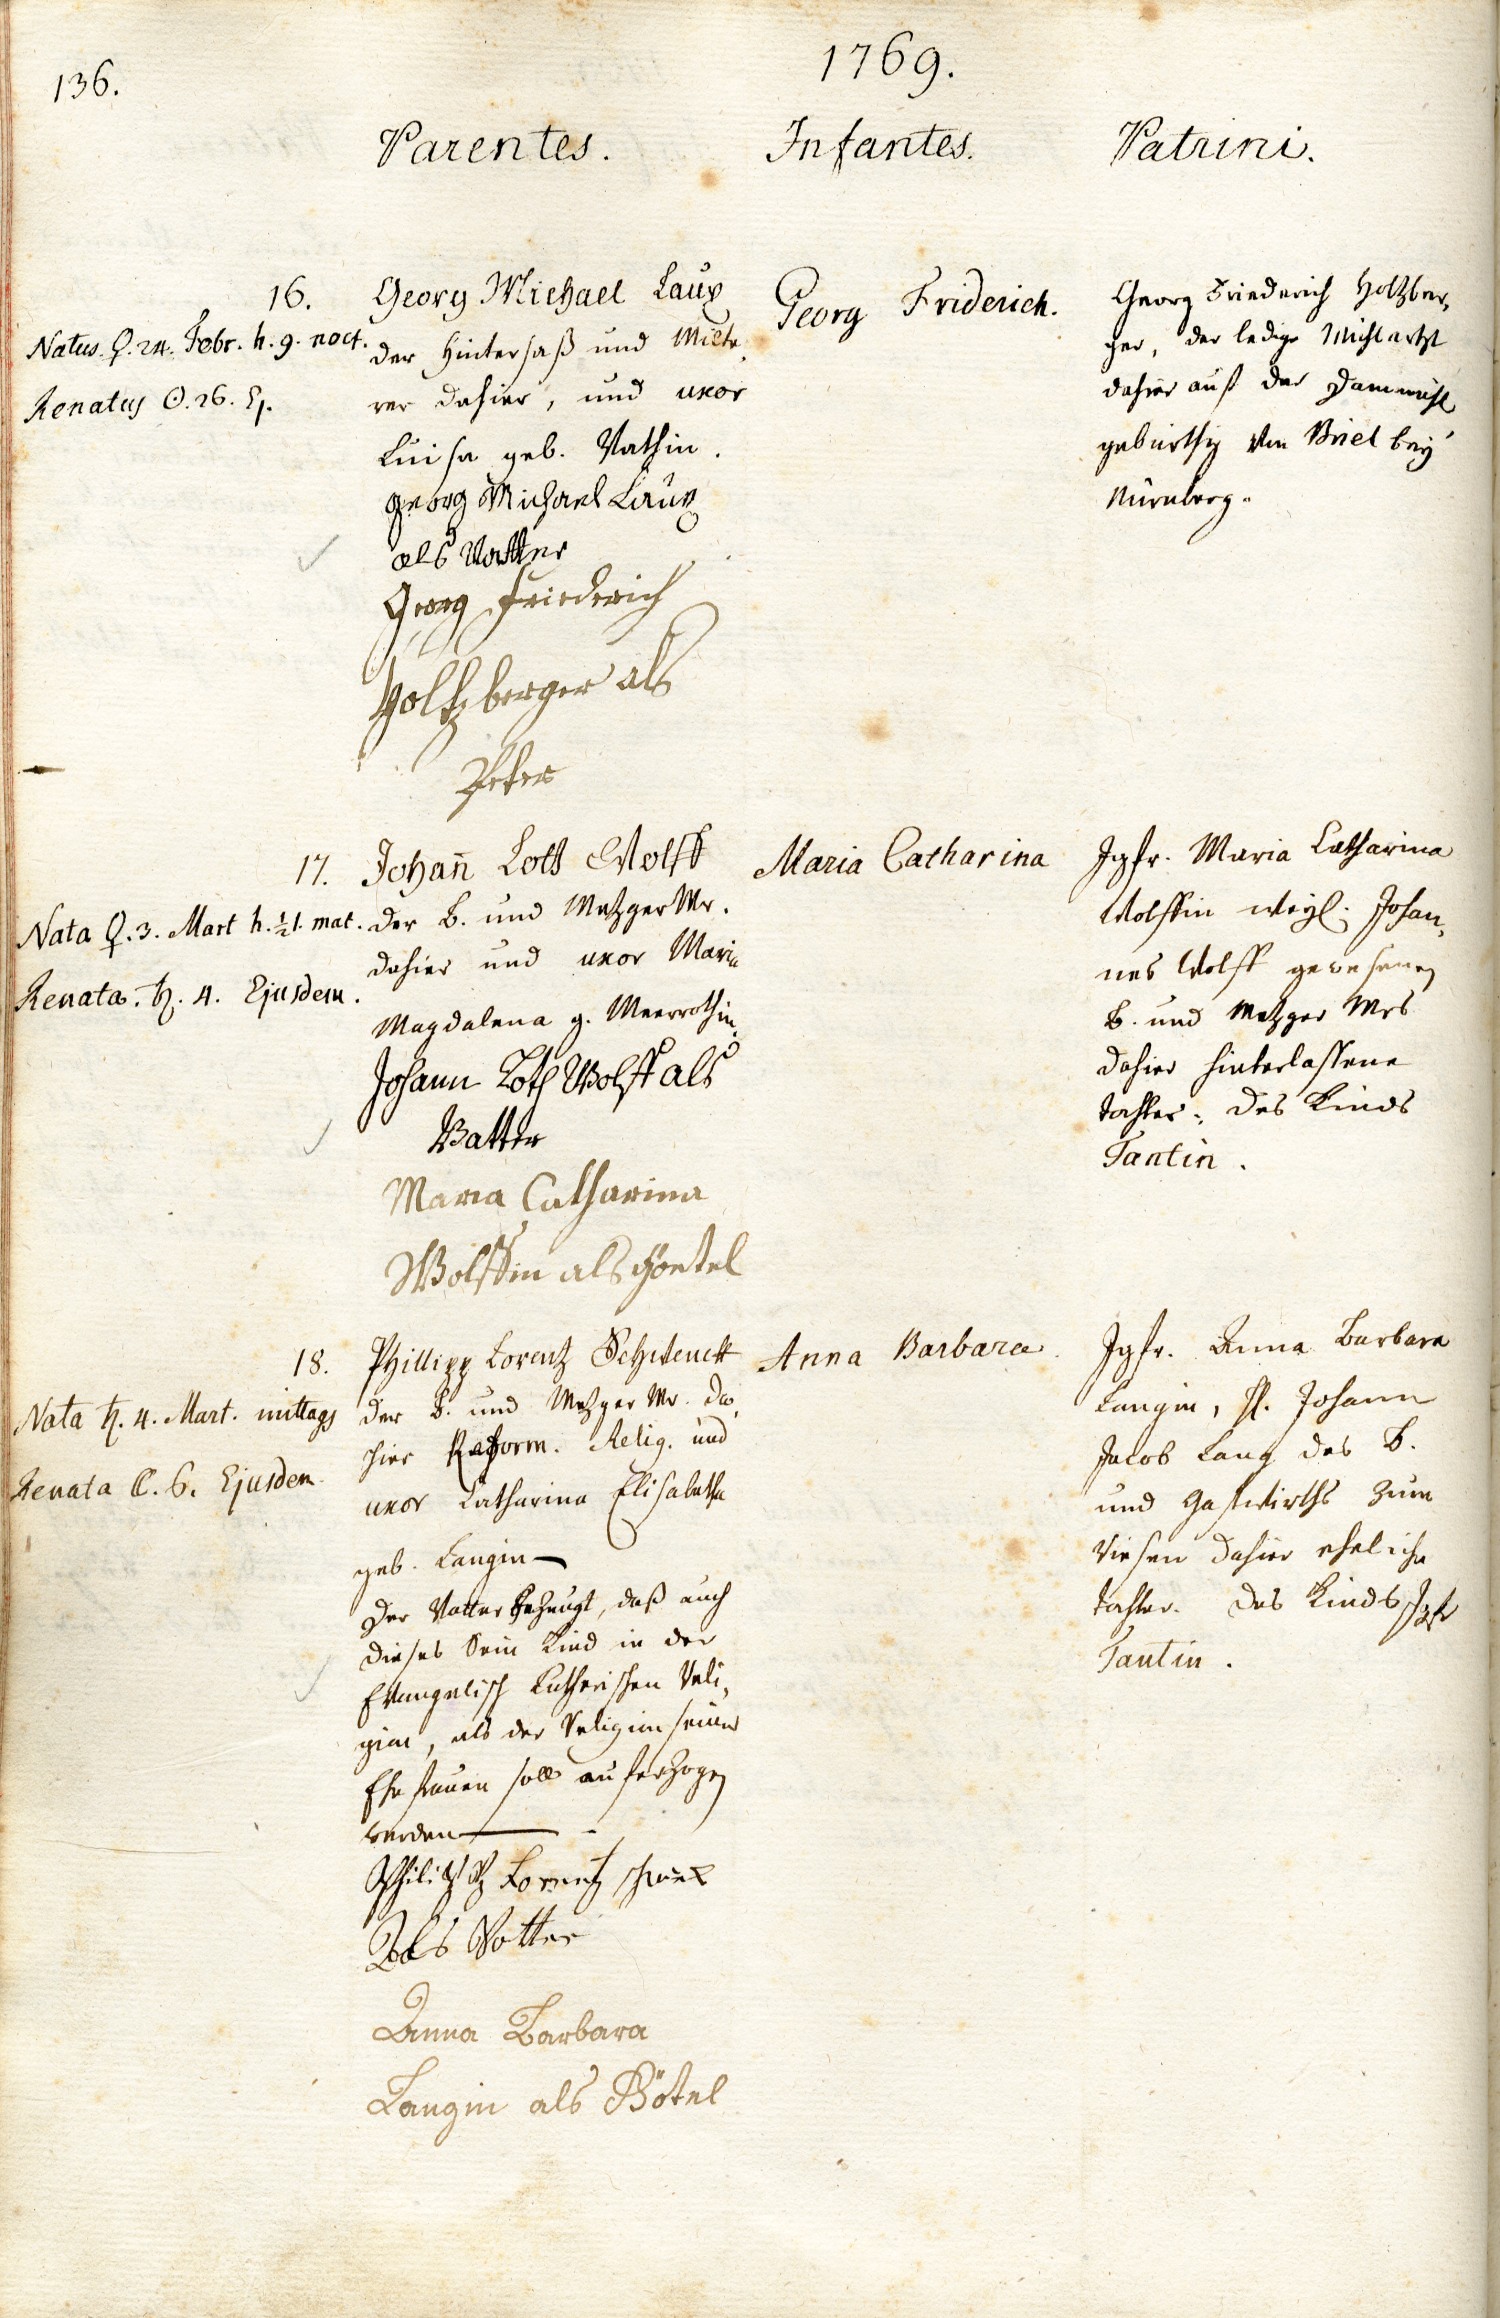 136.
1769.
Parentes.
Infantes.
Patrini.
16.
Natus. ♀. 24. Febr. h. 9. noct.
Renatus ☉. 26. Ej.
Georg Michael Laux
der Hintersaß und
rer dahier, und uxor
Luisa geb. Vathin.
Georg Michael Laux
als Vatter
Georg Friederich
Holtzberger als
Peter
Georg Friderich.
Georg Friederich Holtzber,
ger, der ledige Mühlartzt
dahier auf der Dammühl
gebürthig von Briel bey
Nürnberg.
17.
Nata ♀. 3. Mart h. ½1. mat.
Renata. ♄. 4. Ejusdem.
Johan̄ Loth Wolff
der B. und Metzger Mr.
dahier und uxor Maria
Magdalena g. Meerrothin.
Johann Loth Wolff als
Vatter
Maria Catharina
Wolffin als Goetel
Maria Catharina
Jgfr. Maria Catharina
Wolffin weyl. Johan,
nes Wolff gewesenen
B. und Metzger Mrs
dahier hinterlassene
tochter. des Kinds
Tantin.
18.
Nata ♄. 4. Mart. mittags
Renata ☾. 6. Ejusdem
Phillipp Lorentz Schwenck
der B. und Metzger Mr. da,
hier Reform. Relig. und
uxor Catharina Elisabetha
geb. Langin—
Der Vatter bezeugt, daß auch
dieses Sein Kind in der
Evangelisch Lutherischen Reli,
gion, als der Religion seiner
Ehefrauen soll auferzogen
werden
Philipp Lorentz
Als Votter
Anna Barbara
Langin als Götel
Anna Barbara.
Jgfr. Anna Barbara
Langin, H. Johann
Jacob Lang des B.
und Gastwirths zum
Riesen dahier eheliche
tochter. des Kinds
Tantin.